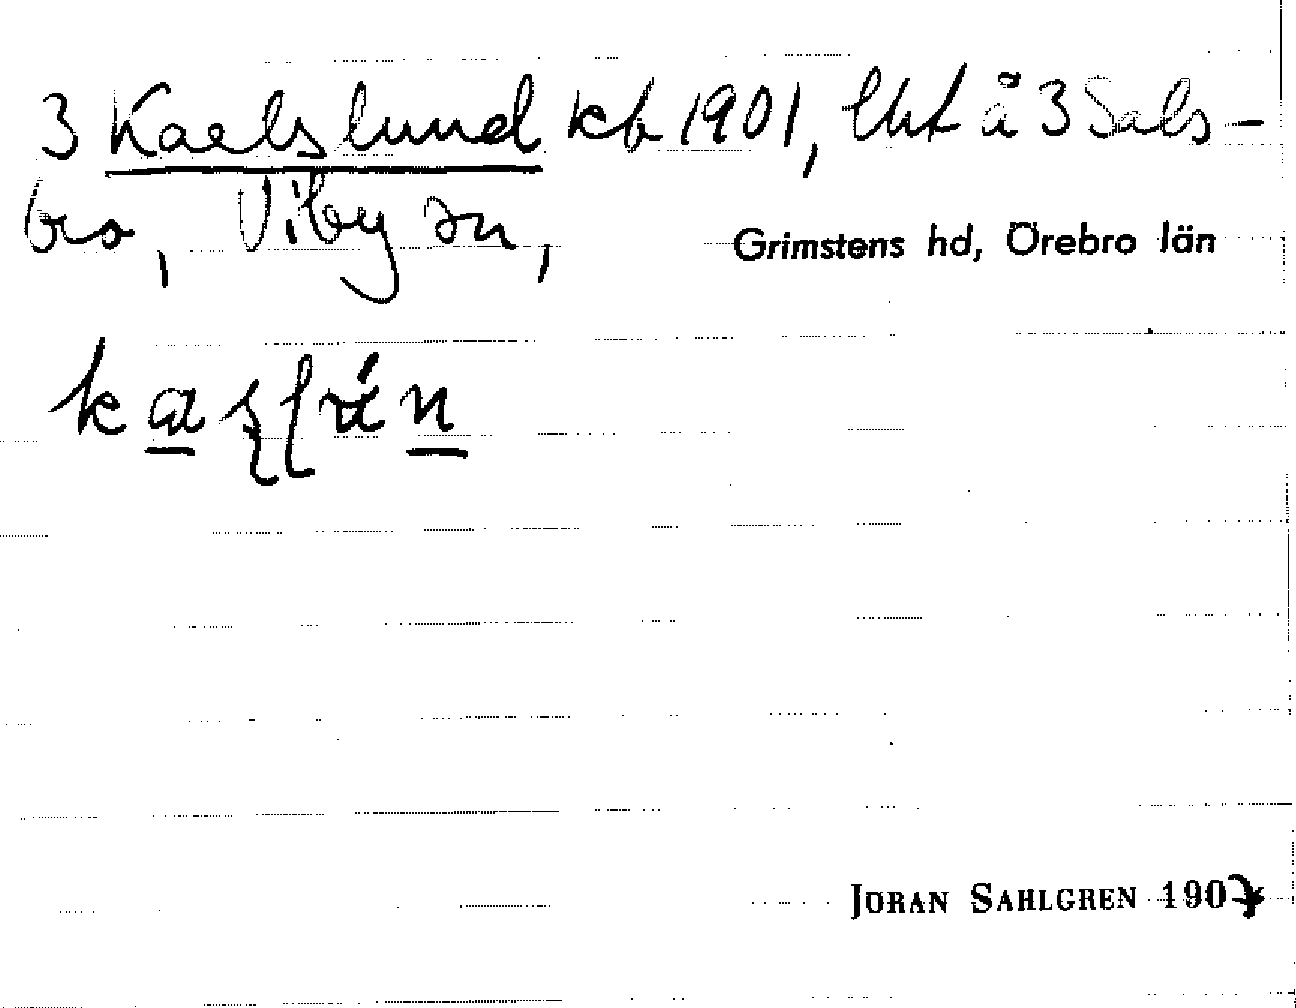 3 Kaelslund kb 1901, lht å 3 Sals-
bro, Viby sn,
Grimstens hd, Örebro län
JÖRAN SAHLGREN 1907